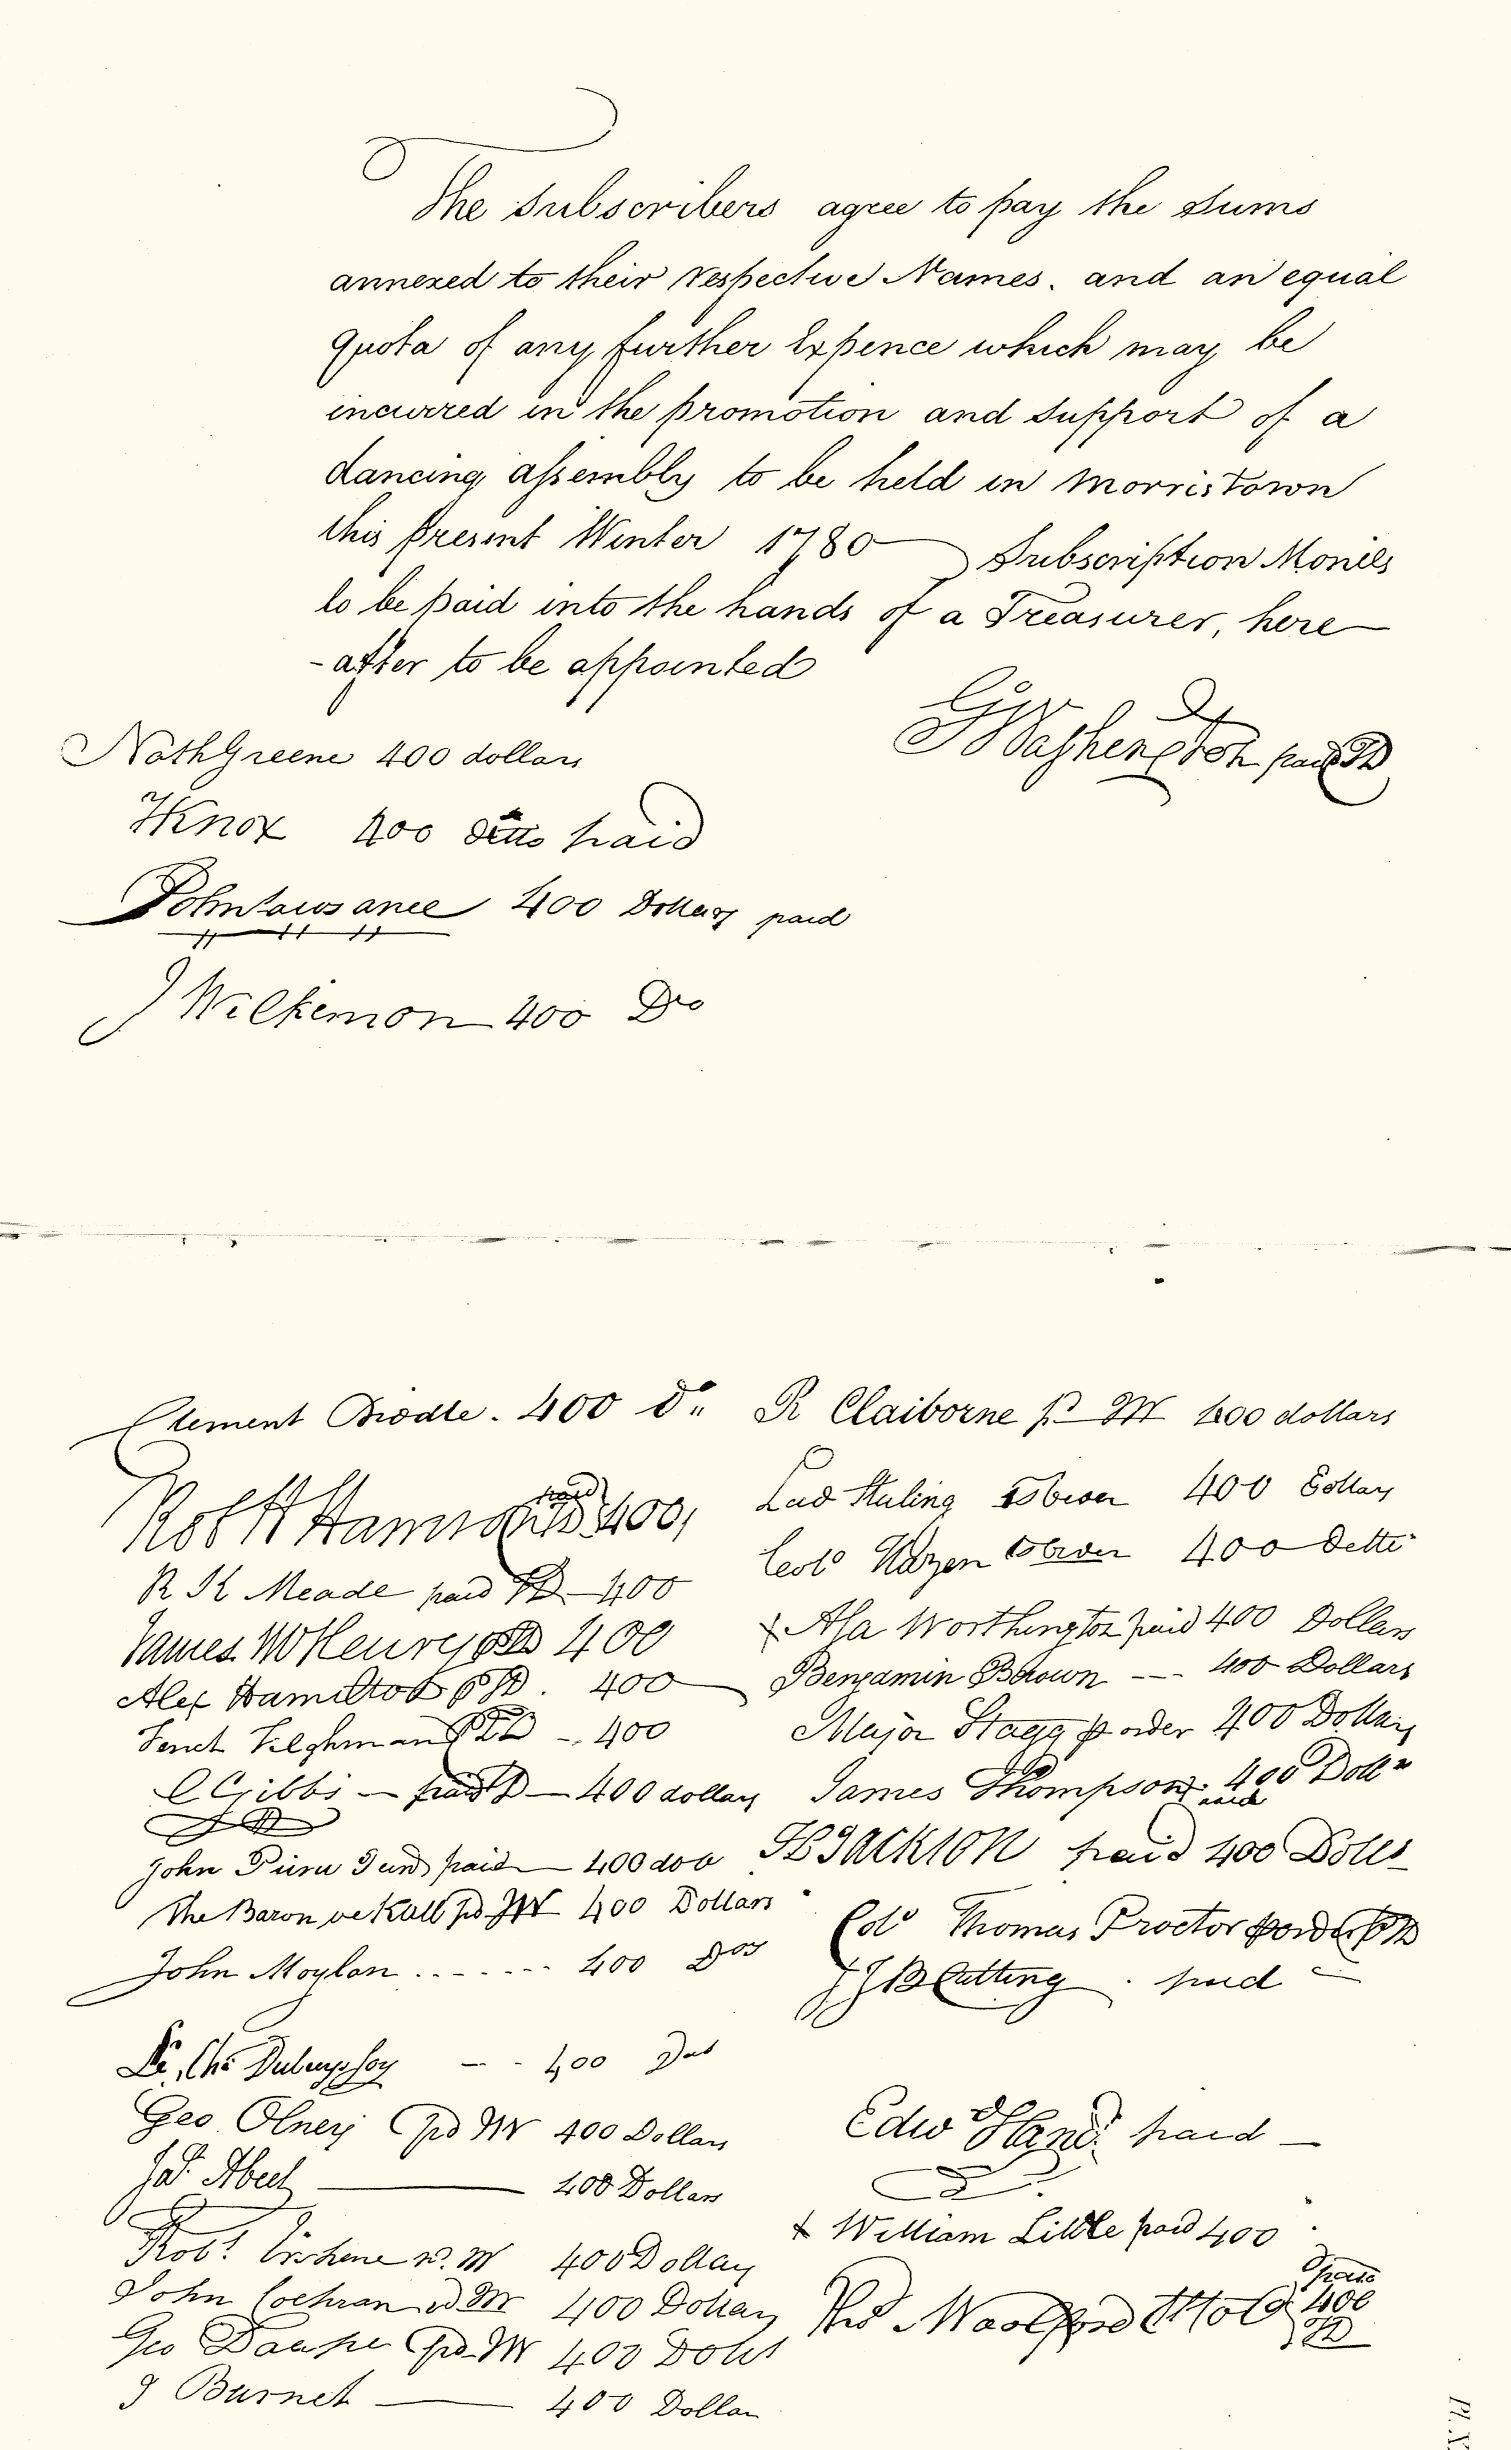 The Subscribers agree to pay the Sums
annexed to their respective Names. and an equal
quota of any further Expence which may be
incurred in the promotion and support of a
dancing assembly to be held in Morristown
this present Winter 1780 Subscription Monies
to be paid into the hands of a Treasurer, here
-after to be appointed
Nath Greene 400 dollars
G Washington paid
HKnox 400 ditto paid
400 Dollars paid
J Wilkinson 400 Do
Clement Biddle. 400 Do
Robt H Harrison paid 400,
R K Meade paid 400
James McHenry 400
Alex Hamilton 400
Tench Tilghman 400
C Gibbs — paid — 400 dollars
John paid 400
The Baron de Kalb pd 400 Dollars
John Moylan ........ 400 Dos
400
Geo Olney pd 400 Dollars
Ja. Abeel 400 Dollars
Robt. 400 Dollars
John Cochran 400 Dollars
Geo pd 400 Dolls
J Burnet 400 Dollars
R Claiborne 400 dollars
Lord Stirling 400 Dollars
Colo Hazen 400 Ditto
Asa Worthington paid 400 Dollars
Benjamin Brown --- 400 Dollars
Major Stagg order 400 Dollars
James Thompson 400 Dolls
paid
H Jackson paid 400 Dolls
Colo Thomas Proctor
JB Cutting . paid
Edw Hand. paid —
William Little paid 400
Woolford paid
400